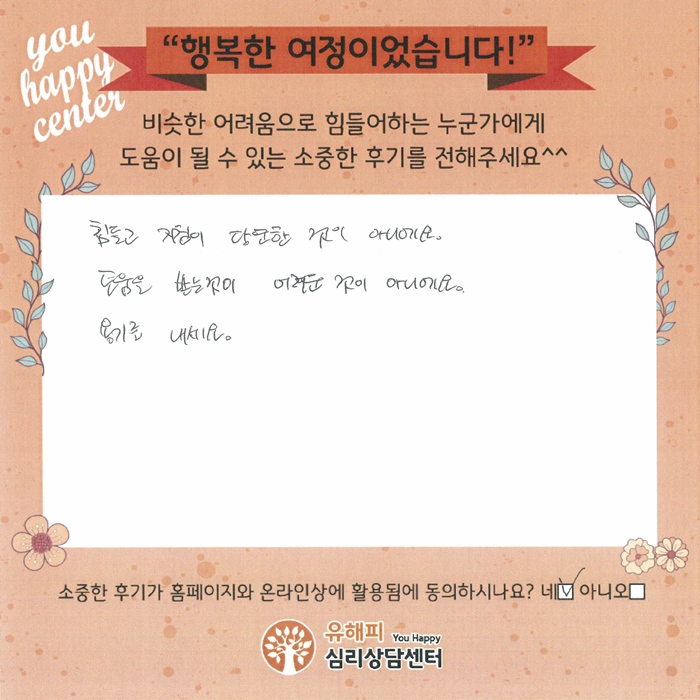 you
happy
center
“행복한 여정이었습니다!”
비슷한 어려움으로 힘들어하는 누군가에게
도움이 될 수 있는 소중한 후기를 전해주세요^^
힘들고 지침이 당연한 것이 아니에요.
도움을 받는것이 어려운 것이 아니에요.
용기를 내세요.
소중한 후기가 홈페이지와 온라인상에 활용됨에 동의하시나요? 네☑ 아니오☐
유해피 You Happy
심리상담센터